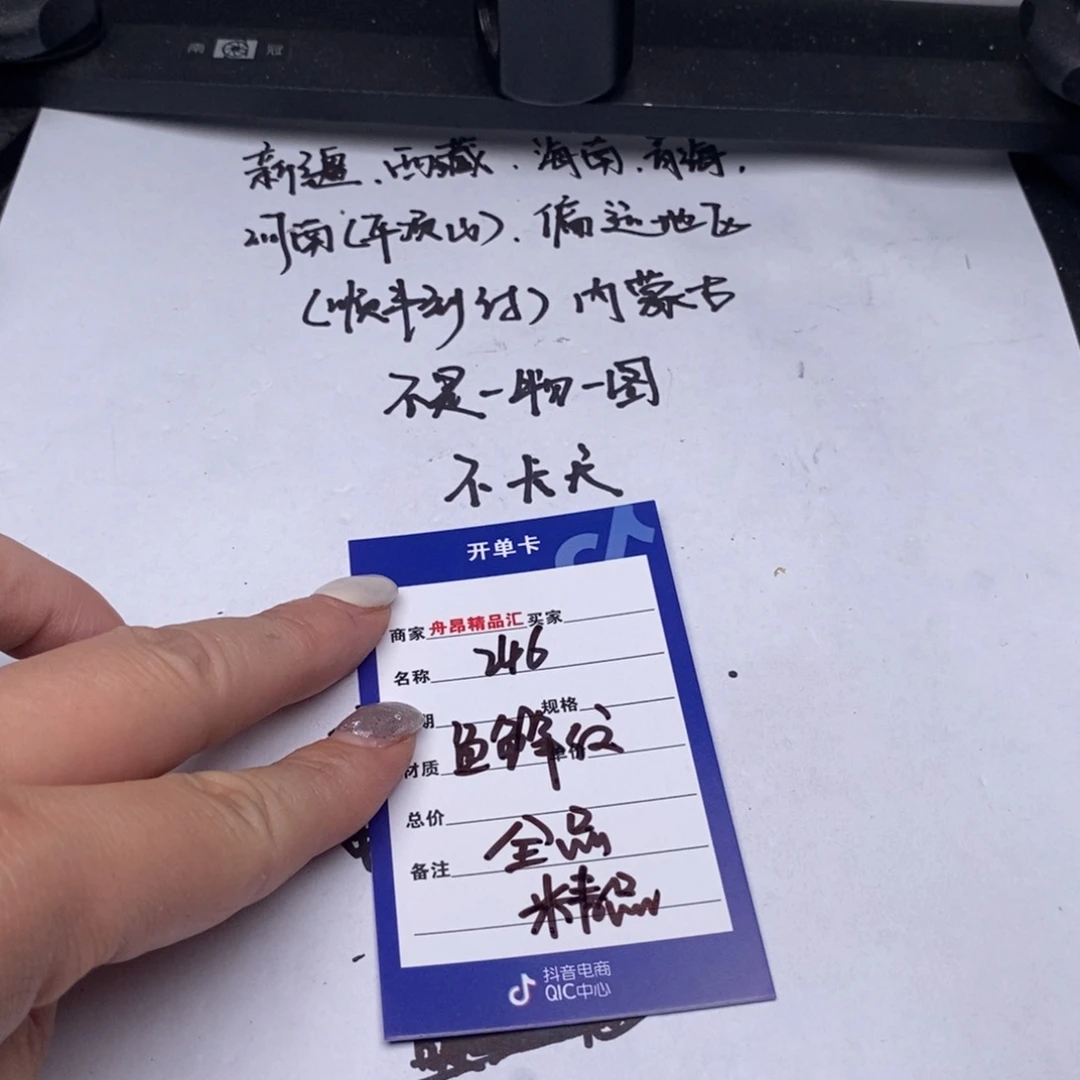 南 冠
新疆、西藏、海南、青海、
河南(平顶山)、偏远地区
(顺丰到付)内蒙古
不是一物一图
不卡天
开单卡
商家 舟昂精品汇 买家
名称 246
期 规格
材质 单价
总价 全品
备注
精品
抖音电商
QIC中心